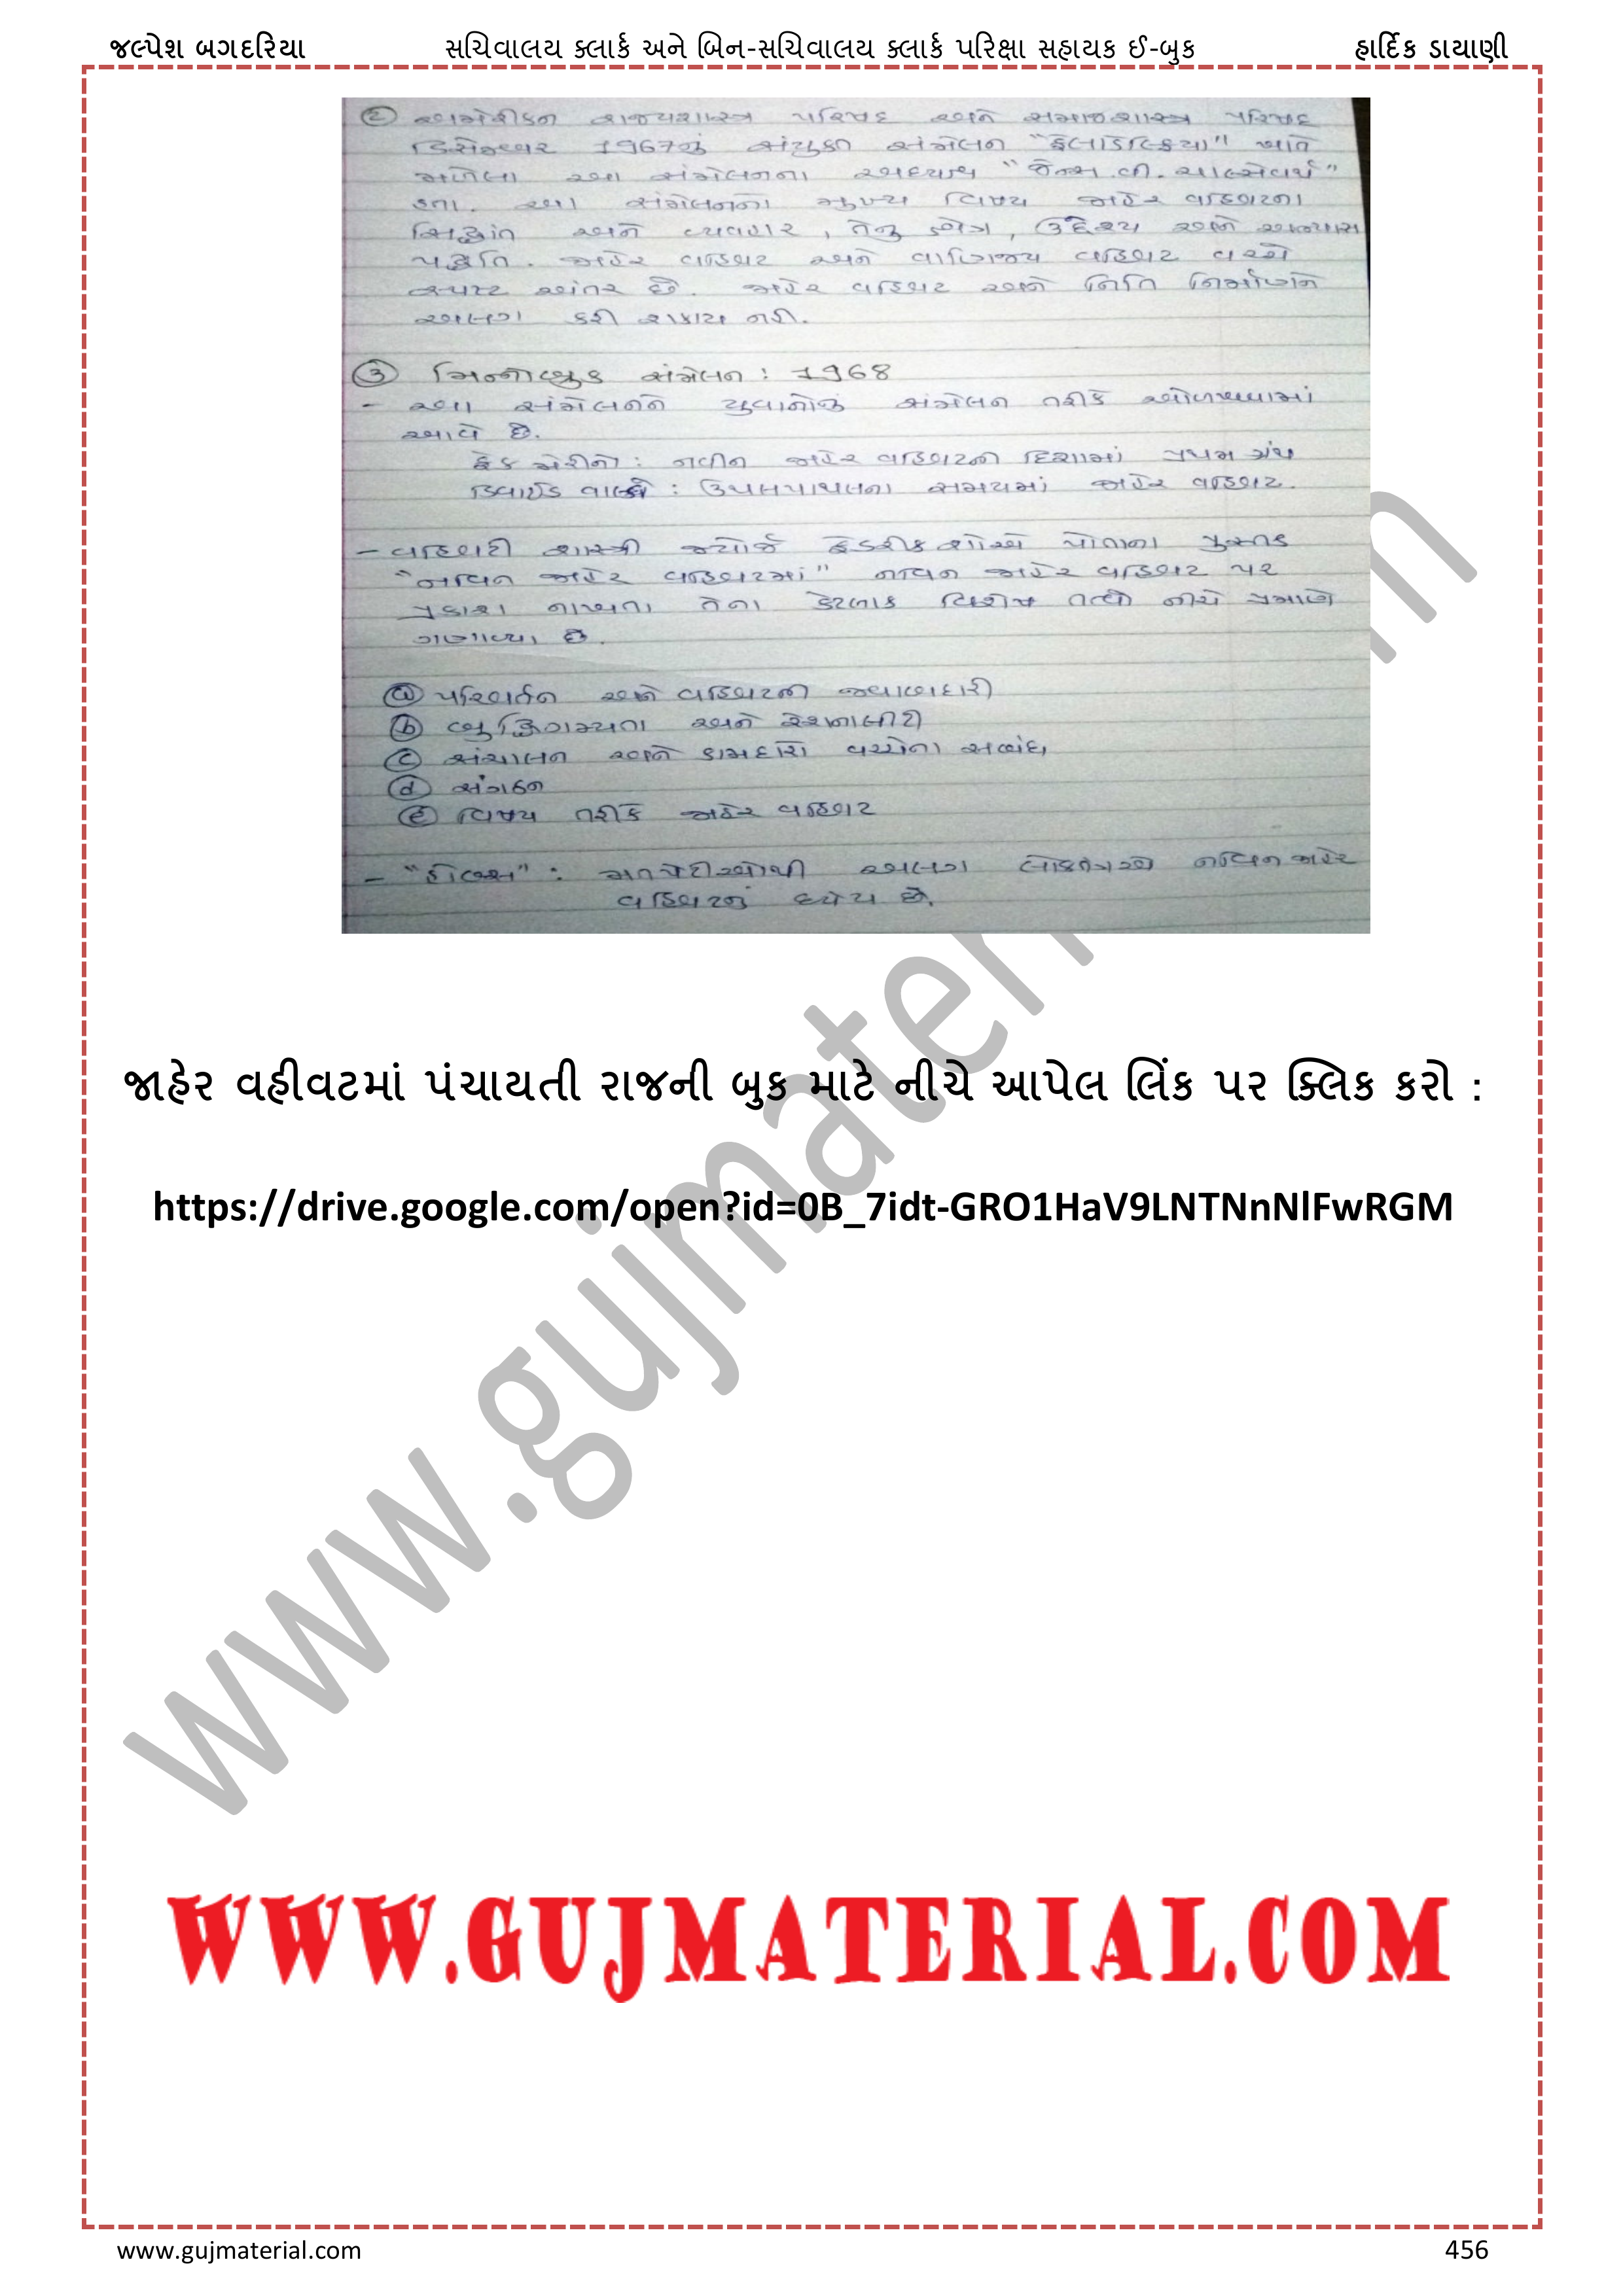 જલ્પેશ બગદરિયા સચિવાલય ક્લાર્ક અને બિન-સચિવાલય ક્લાર્ક પરિક્ષા સહાયક ઈ-બુક હાર્દિક ડાયાણી
② અમેરીકન રાજ્યશાસ્ત્ર પરિષદ અને સમાજશાસ્ત્ર પરિષદ
ડિસેમ્બર 1967નું સંયુક્ત સંમેલન "ફિલાડેલ્ફિયા" ખાતે
મળેલા આ સંમેલનના અધ્યક્ષ "જેમ્સ.વી.ચાર્લ્સવર્થ"
હતા. આ સંમેલનનો મુખ્ય વિષય જાહેર વહિવટના
સિદ્ધાંત અને વ્યવહાર, તેનુ ક્ષેત્ર, ઉદ્દેશ્ય અને અભ્યાસ
પદ્ધતિ. જાહેર વહિવટ અને વાણિજ્ય વહિવટ વચ્ચે
સ્પષ્ટ અંતર છે. જાહેર વહિવટ અને નિતિ નિર્માણને
અલગ કરી શકાય નહી.
③ મિન્નોબ્રુક સંમેલન : 1968
- આ સંમેલનને યુવાનોનું સંમેલન તરીકે ઓળખવામાં
આવે છે.
ફ્રેંક મેરીનો : નવીન જાહેર વહિવટની દિશામાં પ્રથમ ગ્રંથ
ડ્વાઈટ વાલ્ડો : ઉથલપાથલના સમયમાં જાહેર વહિવટ.
- વહિવટી શાસ્ત્રી જ્યોર્જ ફ્રેડરીકશોએ પોતાના પુસ્તક
"નવિન જાહેર વહિવટમાં" નવિન જાહેર વહિવટ પર
પ્રકાશ નાખતા તેના કેટલાક વિશેષ તત્વો નીચે પ્રમાણે
ગણાવ્યા છે.
ⓐ પરિવર્તન અને વહિવટની જવાબદારી
ⓑ બુદ્ધિગમ્યતા અને રેશનાલીટી
ⓒ સંચાલન અને કામદારો વચ્ચેના સબંધ
ⓓ સંગઠન
ⓔ વિષય તરીકે જાહેર વહિવટ
- : મતપેટીઓથી અલગ નવિન જાહેર
વહિવટનું ધ્યેય છે.
જાહેર વહીવટમાં પંચાયતી રાજની બુક માટે નીચે આપેલ લિંક પર ક્લિક કરો :
https://drive.google.com/open?id=0B_7idt-GRO1HaV9LNTNnNlFwRGM
WWW.GUJMATERIAL.COM
www.gujmaterial.com 456